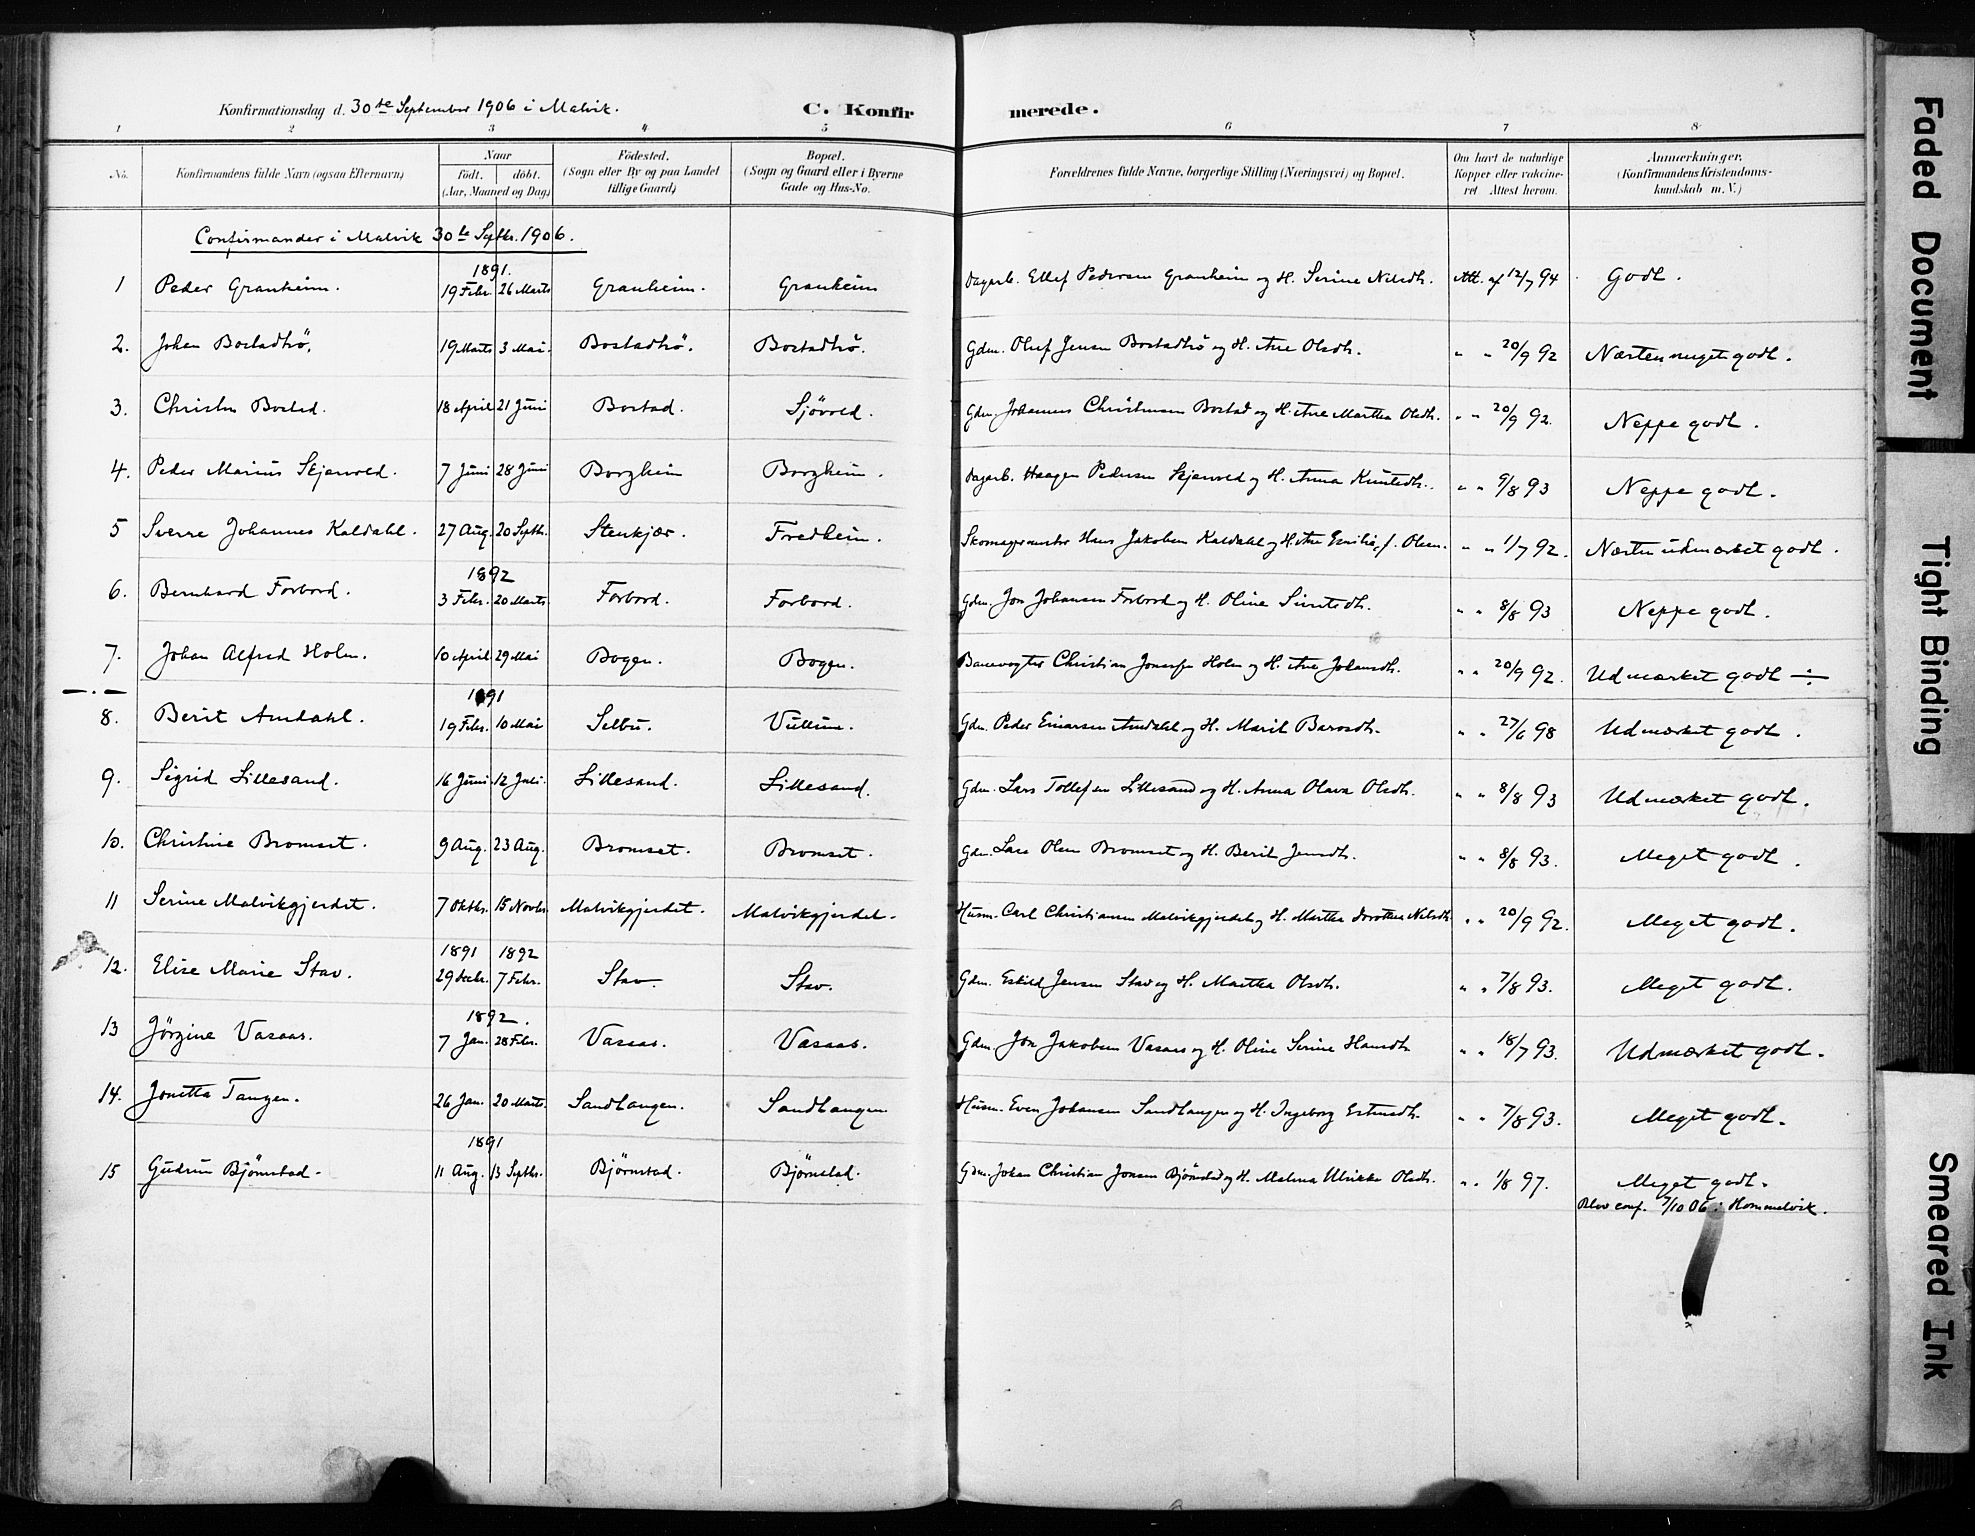 Konfirmationsdag d. 30te September 1906 i Malvik. C. Konfir merede.
1 2 3 4 5 6 7 8
No. Konfirmandens fulde Navn (ogsaa Efternavn) Naar født. døbt. (Aar, Maaned og Dag) Fødested. (Sogn eller By og paa Landet tillige Gaard) Bopæl. (Sogn og Gaard eller i Byerne Gade og Hus-No. Forældrenes fulde Navne, borgerlige Stilling (Næringsvei) og Bopæl. Om havt de naturlige Kopper eller vakcineret Attest herom. Anmærkninger, (Konfirmandens Kristendomskundskab m. V.)
Confirmander i Malvik 30te Septbr. 1906.
1891.
1 Peder Granheim. 19 Febr. 26 Marts Granheim. Granheim Dagarb. Ellef Pedersen Granheim og H. Serine Nilsdtr. Att. af 12/7 94 Godt.
2. Johan Bostadtrö. 19 Marts 3 Mai. Bostadtrö. Bostadtrö. Gdm. Oluf Jensen Bostadtrö og H. Ane Olsdtr. " " 20/9 92 Næsten meget godt.
3. Christen Bostad. 18 April 21 Juni Bostad. Sjövold. Gdm. Johannes Christensen Bostad og H. Ane Martha Olsdtr. " " 20/9 92. Neppe godt.
4. Peder Marius Skjervold. 7 Juni 28 Juni Borgheim Borgheim. Dagarb. Haagen Pedersen Skjervold og H. Anna Knutsdtr. " " 9/8 93 Neppe godt.
5 Sverre Johannes Kaldahl. 27 Aug. 20 Septbr. Stenkjær. Fredheim. Skomagermester Hans Jakobsen Kaldahl og H. Ane Emilie, f. Olsen. " " 1/7 92. Næsten udmærket godt.
1892
6. Bernhard Forbord. 3 Febr. 20 Marts Forbord. Forbord. Gdm. Jon Johansen Forbord og H. Oline Sivertsdtr. " " 8/8 93 Neppe godt.
7. Johan Alfred Holm. 10 April 29 Mai Bogen. Bogen. Banevogter Christian Holm og H. Ane Johansdtr. " " 20/9 92. Udmærket godt
1891
8. Berit Amdahl. 19 Febr. 10 Mai Selbu. Vullum. Gdm. Peder Einarsen Amdahl og H. Marit Barosdtr. " " 27/6 98 Udmærket godt.
9. Sigrid Lillesand. 16 Juni 12 Juli. Lillesand. Lillesand. Gdm. Lars Tollefsen Lillesand og H. Anna Olava Olsdtr. " " 8/8 93 Udmærket godt.
10. Christine Bromset. 9 Aug. 23 Aug. Bromset. Bromset. Gdm. Lars Olsen Bromset og H. Berit Jensdtr. " " 8/8 93. Meget godt.
11 Serine Malvikgjerdet. 7 Oktbr. 15 Novbr. Malvikgjerdet. Malvikgjerdet. Husm. Carl Christiansen Malvikgjerdet og H. Martha Dorothea Nilsdtr. " " 20/9 92. Meget godt.
1891 1892
12. Elise Marie Stav. 29 Decbr. 7 Febr. Stav. Stav. Gdm. Eskild Jensen Stav og H. Martha Olsdtr. " " 7/8 93. Meget godt.
1892.
13 Jörgine Vasaas. 7 Jan. 28 Febr. Vasaas. Vasaas. Gdm. Jon Jakobsen Vasaas og H. Oline Serine Hansdtr. " " 18/7 93. Udmærket godt.
14. Jonetta Tangen. 26 Jan. 20 Marts. Sandtangen. Sandtangen Husm. Even Johansen Sandtangen og H. Ingeborg Estensdtr. " " 7/8 93. Meget godt.
1891
15 Gudrun Björnstad. 11 Aug. 13 Septbr. Björnstad. Björnstad. Gdm. Johan Christian Jonsen Björnstad og H. Malena Ulrikke Olsdtr. " " 1/8 97. Meget godt.
Blev conf. 7/10 06 i Hommelvik.
Faded Document
Tight Binding
Smeared Ink